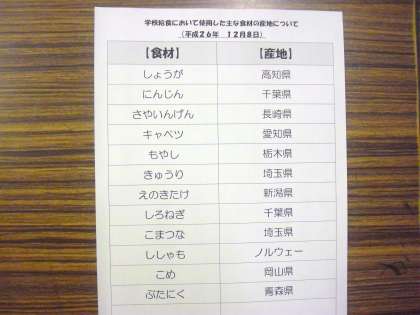 学校給食において使用した主な食材の産地について
（平成２６年　１２月８日）
【食材】　【産地】
しょうが　高知県
にんじん　千葉県
さやいんげん　長崎県
キャベツ　愛知県
もやし　栃木県
きゅうり　埼玉県
えのきたけ　新潟県
しろねぎ　千葉県
こまつな　埼玉県
ししゃも　ノルウェー
こめ　岡山県
ぶたにく　青森県